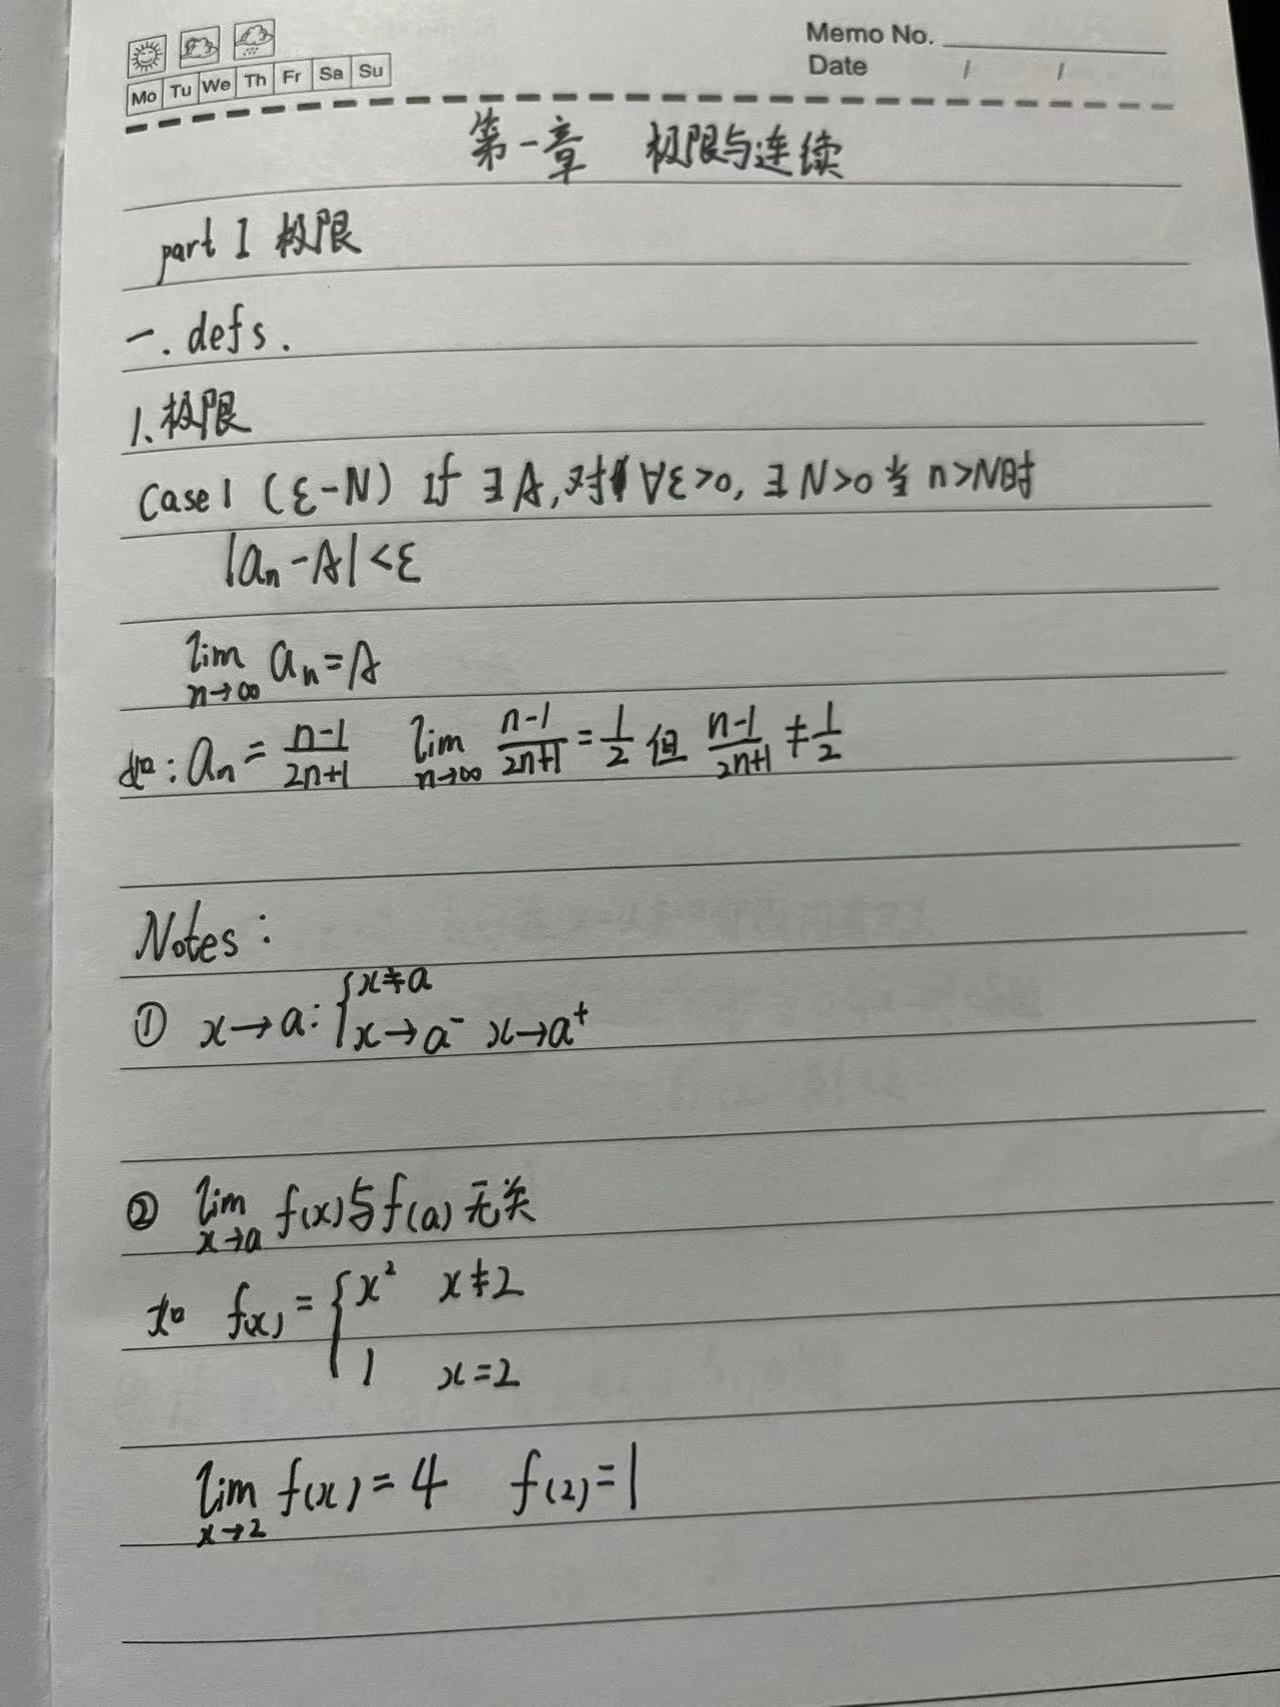 Memo No.
Mo Tu We Th Fr Sa Su
Date / /
第一章 极限与连续
part I 极限
一. defs.
1. 极限
Case 1 (ε-N) If ∃A, 对∀ε>0, ∃N>0 当 n>N时
|aₙ-A|<ε
lim n→∞ aₙ=A
如: aₙ = (n-1)/(2n+1) lim n→∞ (n-1)/(2n+1) = 1/2 但 (n-1)/(2n+1) ≠ 1/2
Notes:
① x→a: { x≠a
x→a⁻ x→a⁺
② lim x→a f(x)与f(a)无关
如 f(x) = { x² x≠2
1 x=2
lim x→2 f(x) = 4 f(2)=1